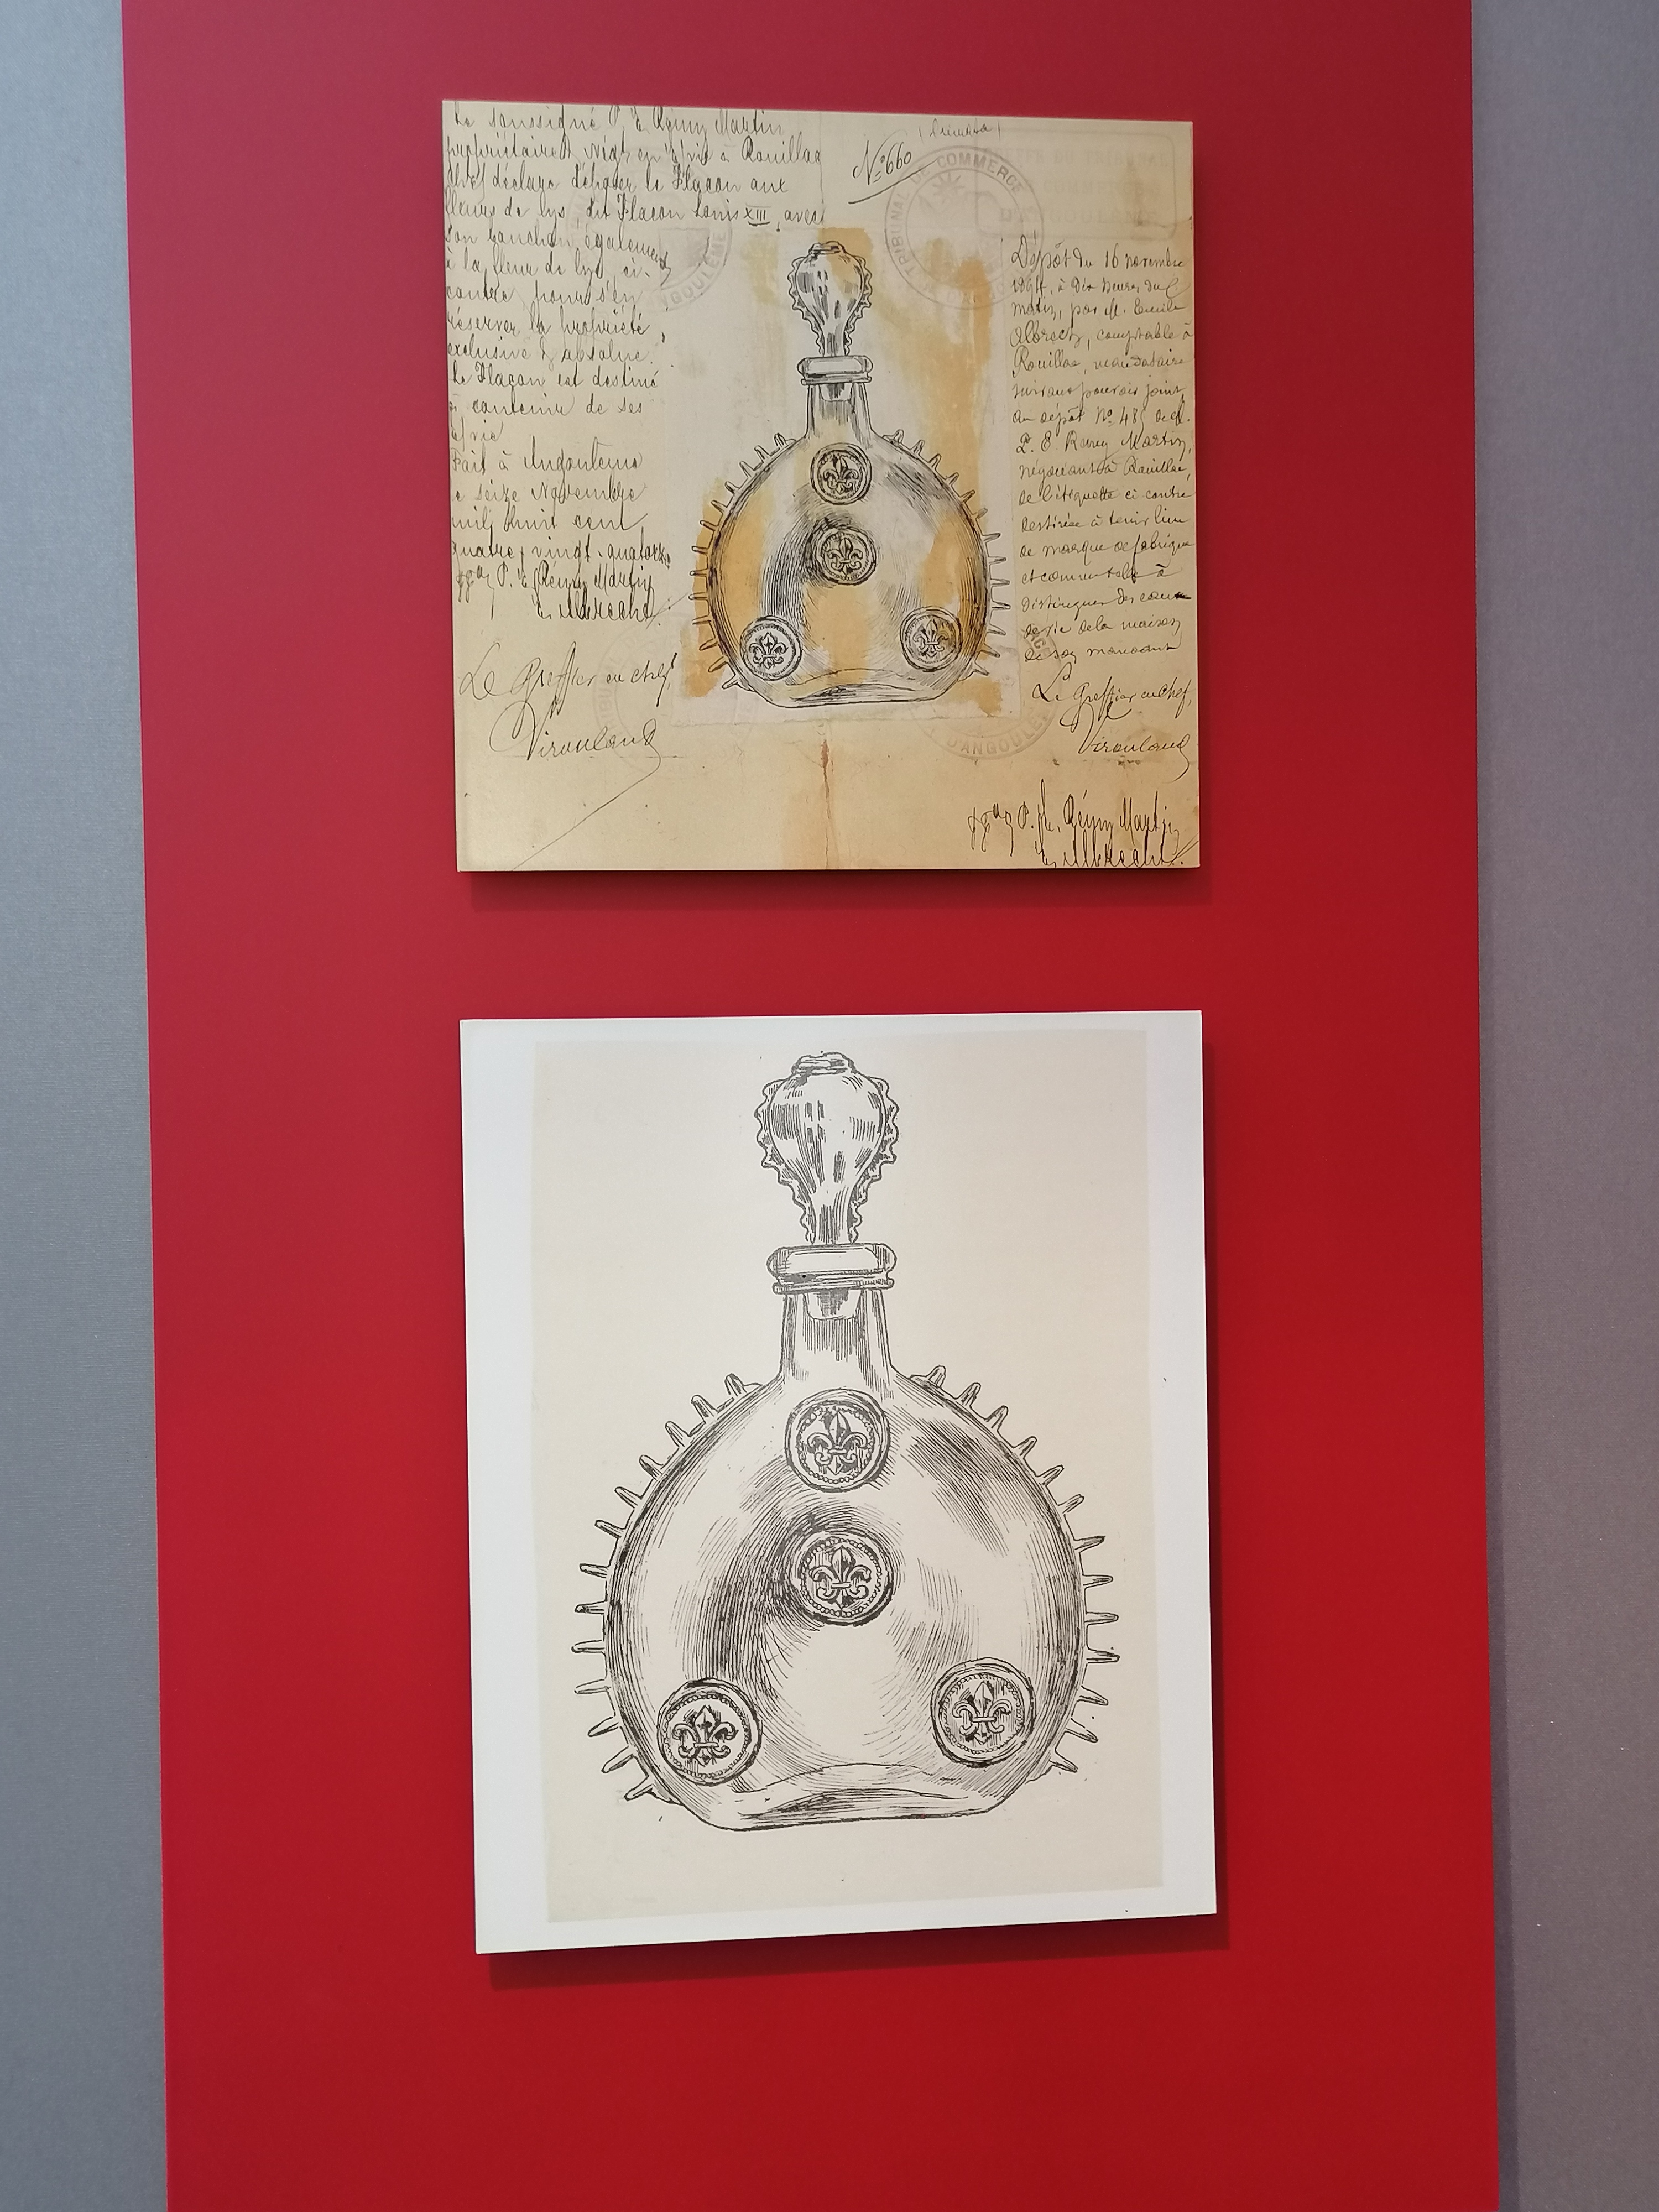 Le soussigné P. E. Rémy Martin
propriétaire & Négt en E/vie à Rouillac
déclare déposer le Flacon aux
fleurs de lys, dit Flacon Louis XIII, avec
son bouchon, également
à la fleur de lys, ci-
contre pour s'en
réserver la propriété
exclusive & absolue.
Le Flacon est destiné
à contenir de ses
E/vie
Fait à Angoulême
le seize Novembre
mil huit cent
quatre vingt-quatorze
P. E. Rémy Martin
E. Albrecht
Le Greffier en chef
Virouland
N° 660
TRIBUNAL DE COMMERCE
GREFFE DU TRIBUNAL
DE COMMERCE
D'ANGOULÊME
Dépôt du 16 novembre
1894, à dix heures du
matin, par M. Emile
Albrecht, comptable à
Rouillac, mandataire
suivant pouvoir joint
au dépôt N° 485 de M.
P. E. Remy Martin,
négociant à Rouillac,
de l'étiquette ci contre
destinée à tenir lieu
de marque de fabrique
et commerciale à
distinguer des eaux
de vie de la maison
de son mandant
Le Greffier en chef,
Virouland
D'ANGOULÊME
P. E. Rémy Martin
E. Albrecht